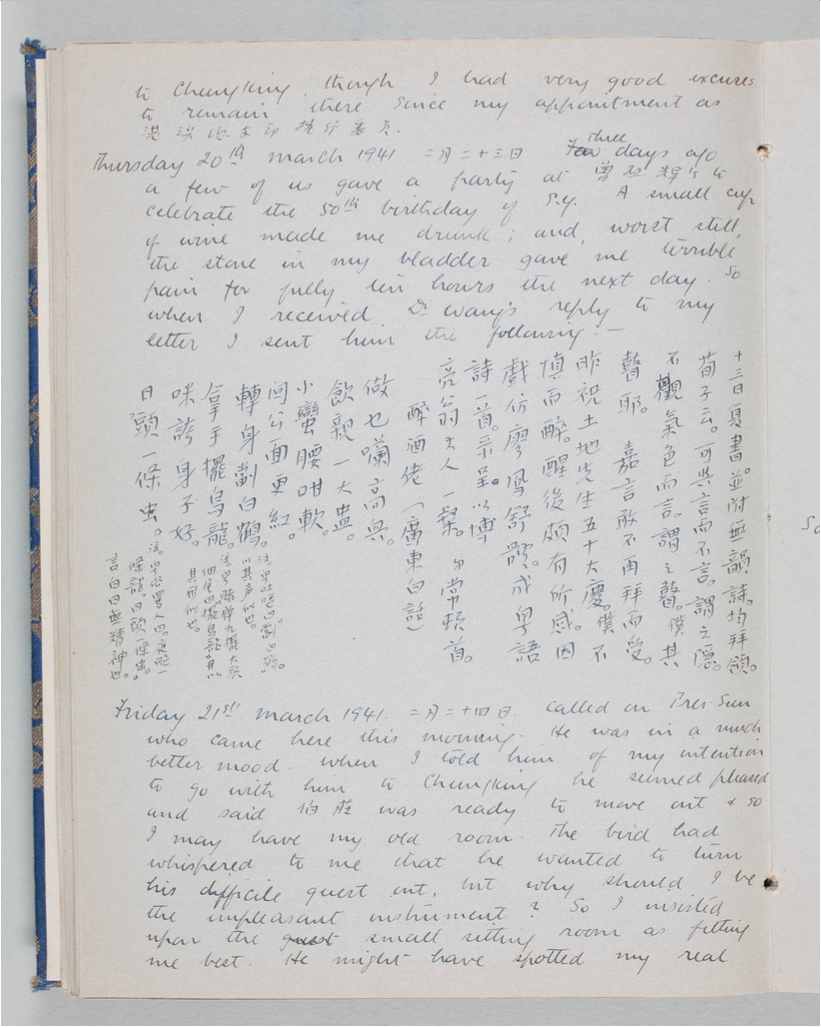 to Chungking, though I had very good excuses
to remain there since my appointment as
Thursday 20th March 1941 二月二十三日 Few Three days ago
a few of us gave a party at 曾 's to
celebrate the 50th birthday of P.Y. A small cup
of wine made me drunk; and, worst still,
the stone in my bladder gave me terrible
pain for fully ten hours the next day. So
when I received Dr. Wang's reply to my
letter I sent him the following:—
十三日夏書並附無韻詩。均拜領。
荀子云。可與言而不言。謂之隱。
不觀氣色而言。謂之瞽。僕其
瞽耶。嘉言敢不再拜而受。
昨祝土地先生五十大慶。僕不
慎而醉。醒後頗有所感。因
戲仿廖鳳舒體。成粵語
詩一首。示呈。以博
亮翁大人一粲。弟常頓首。
醉酒佬(廣東白話)
做乜囒高興。
飲親一大盅。
小蠻腰咁軟。
關公面更紅。
轉身劏白鶴。
拿手擺烏龍。
咪誇身子好。
日頭一條虫。
言白日無精神也。
Friday 21st March 1941. 二月二十四日. Called on Pres. Sun
who came here this morning. He was in a much
better mood. When I told him of my intention
to go with him to Chungking he seemed pleased
and said 伯 was ready to move out & so
I may have my old room. The bird had
whispered to me that he wanted to turn
his difficile guest out, but why should I be
the unpleasant instrument? So I insisted
upon the guest small sitting room as fitting
me best. He might have spotted my real